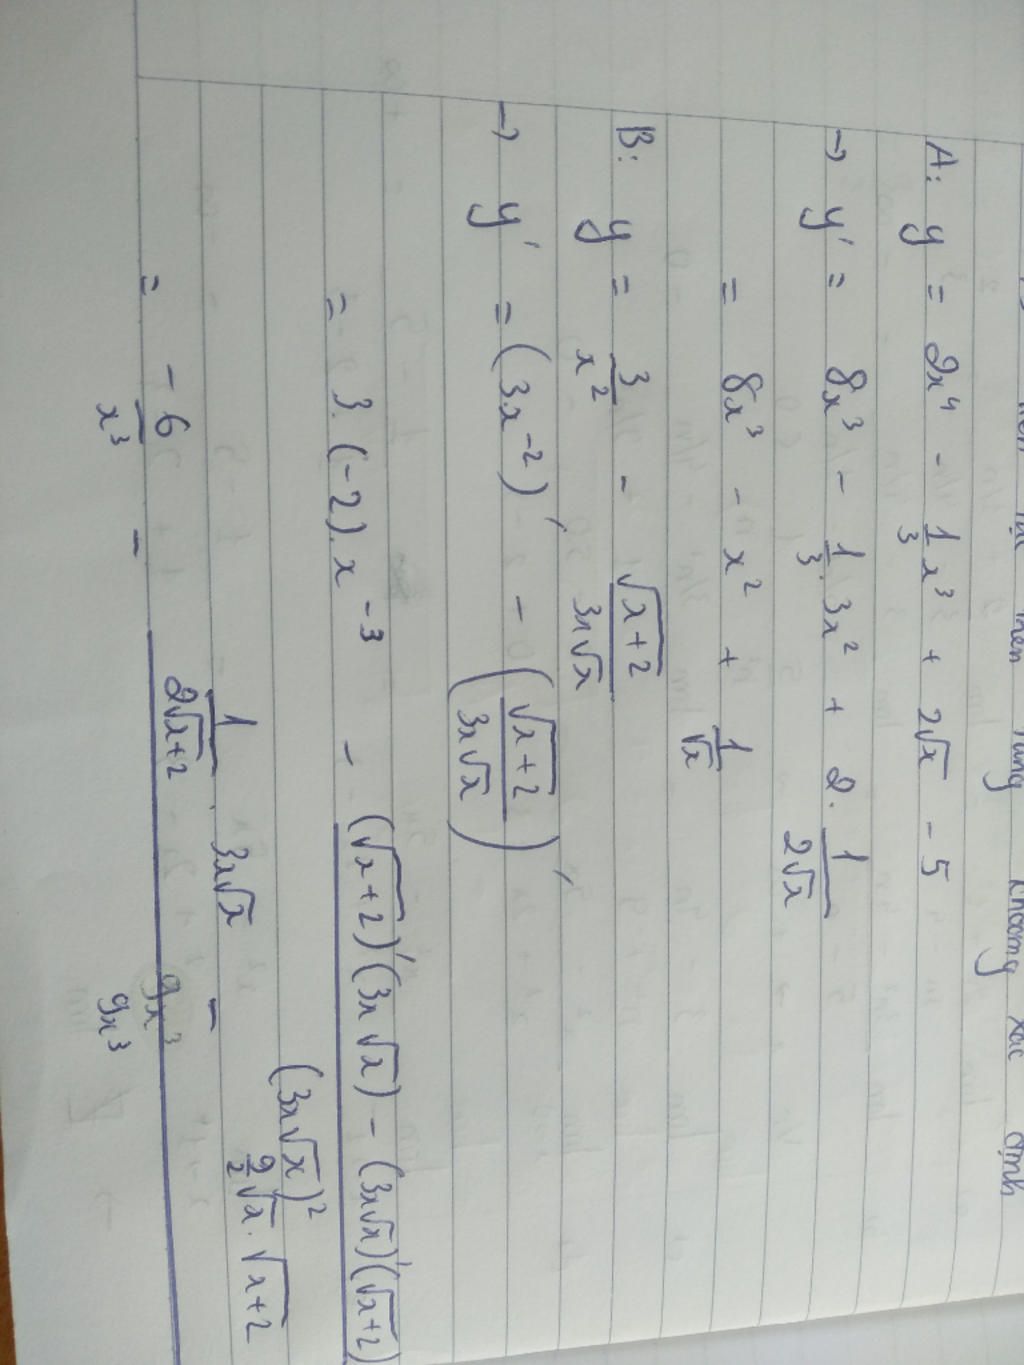 trên từng khoảng xác định
A: y = 2x⁴ - 1/3 x³ + 2√x - 5
→ y' = 8x³ - 1/3 . 3x² + 2. 1/(2√x)
= 8x³ - x² + 1/√x
B: y = 3/x² - √(x+2)/(3x√x)
→ y' = (3.x⁻²)' - (√(x+2)/(3x√x))'
= 3.(-2).x⁻³ - ((√(x+2))'(3x√x) - (3x√x)'(√(x+2)))/(3x√x)²
= -6/x³ - (1/(2√(x+2)) . 3x√x - 9/2 √x . √(x+2))/(9x³)